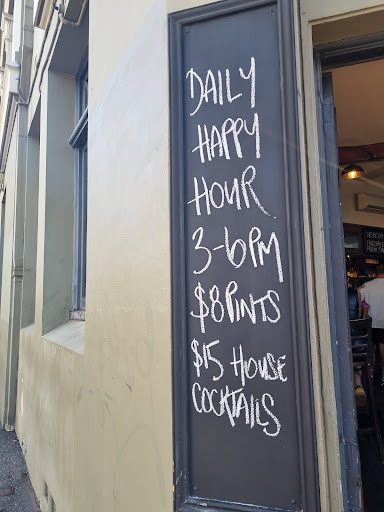 DAILY
HAPPY
HOUR
3-6PM
$8 PINTS
$15 HOUSE
COCKTAILS